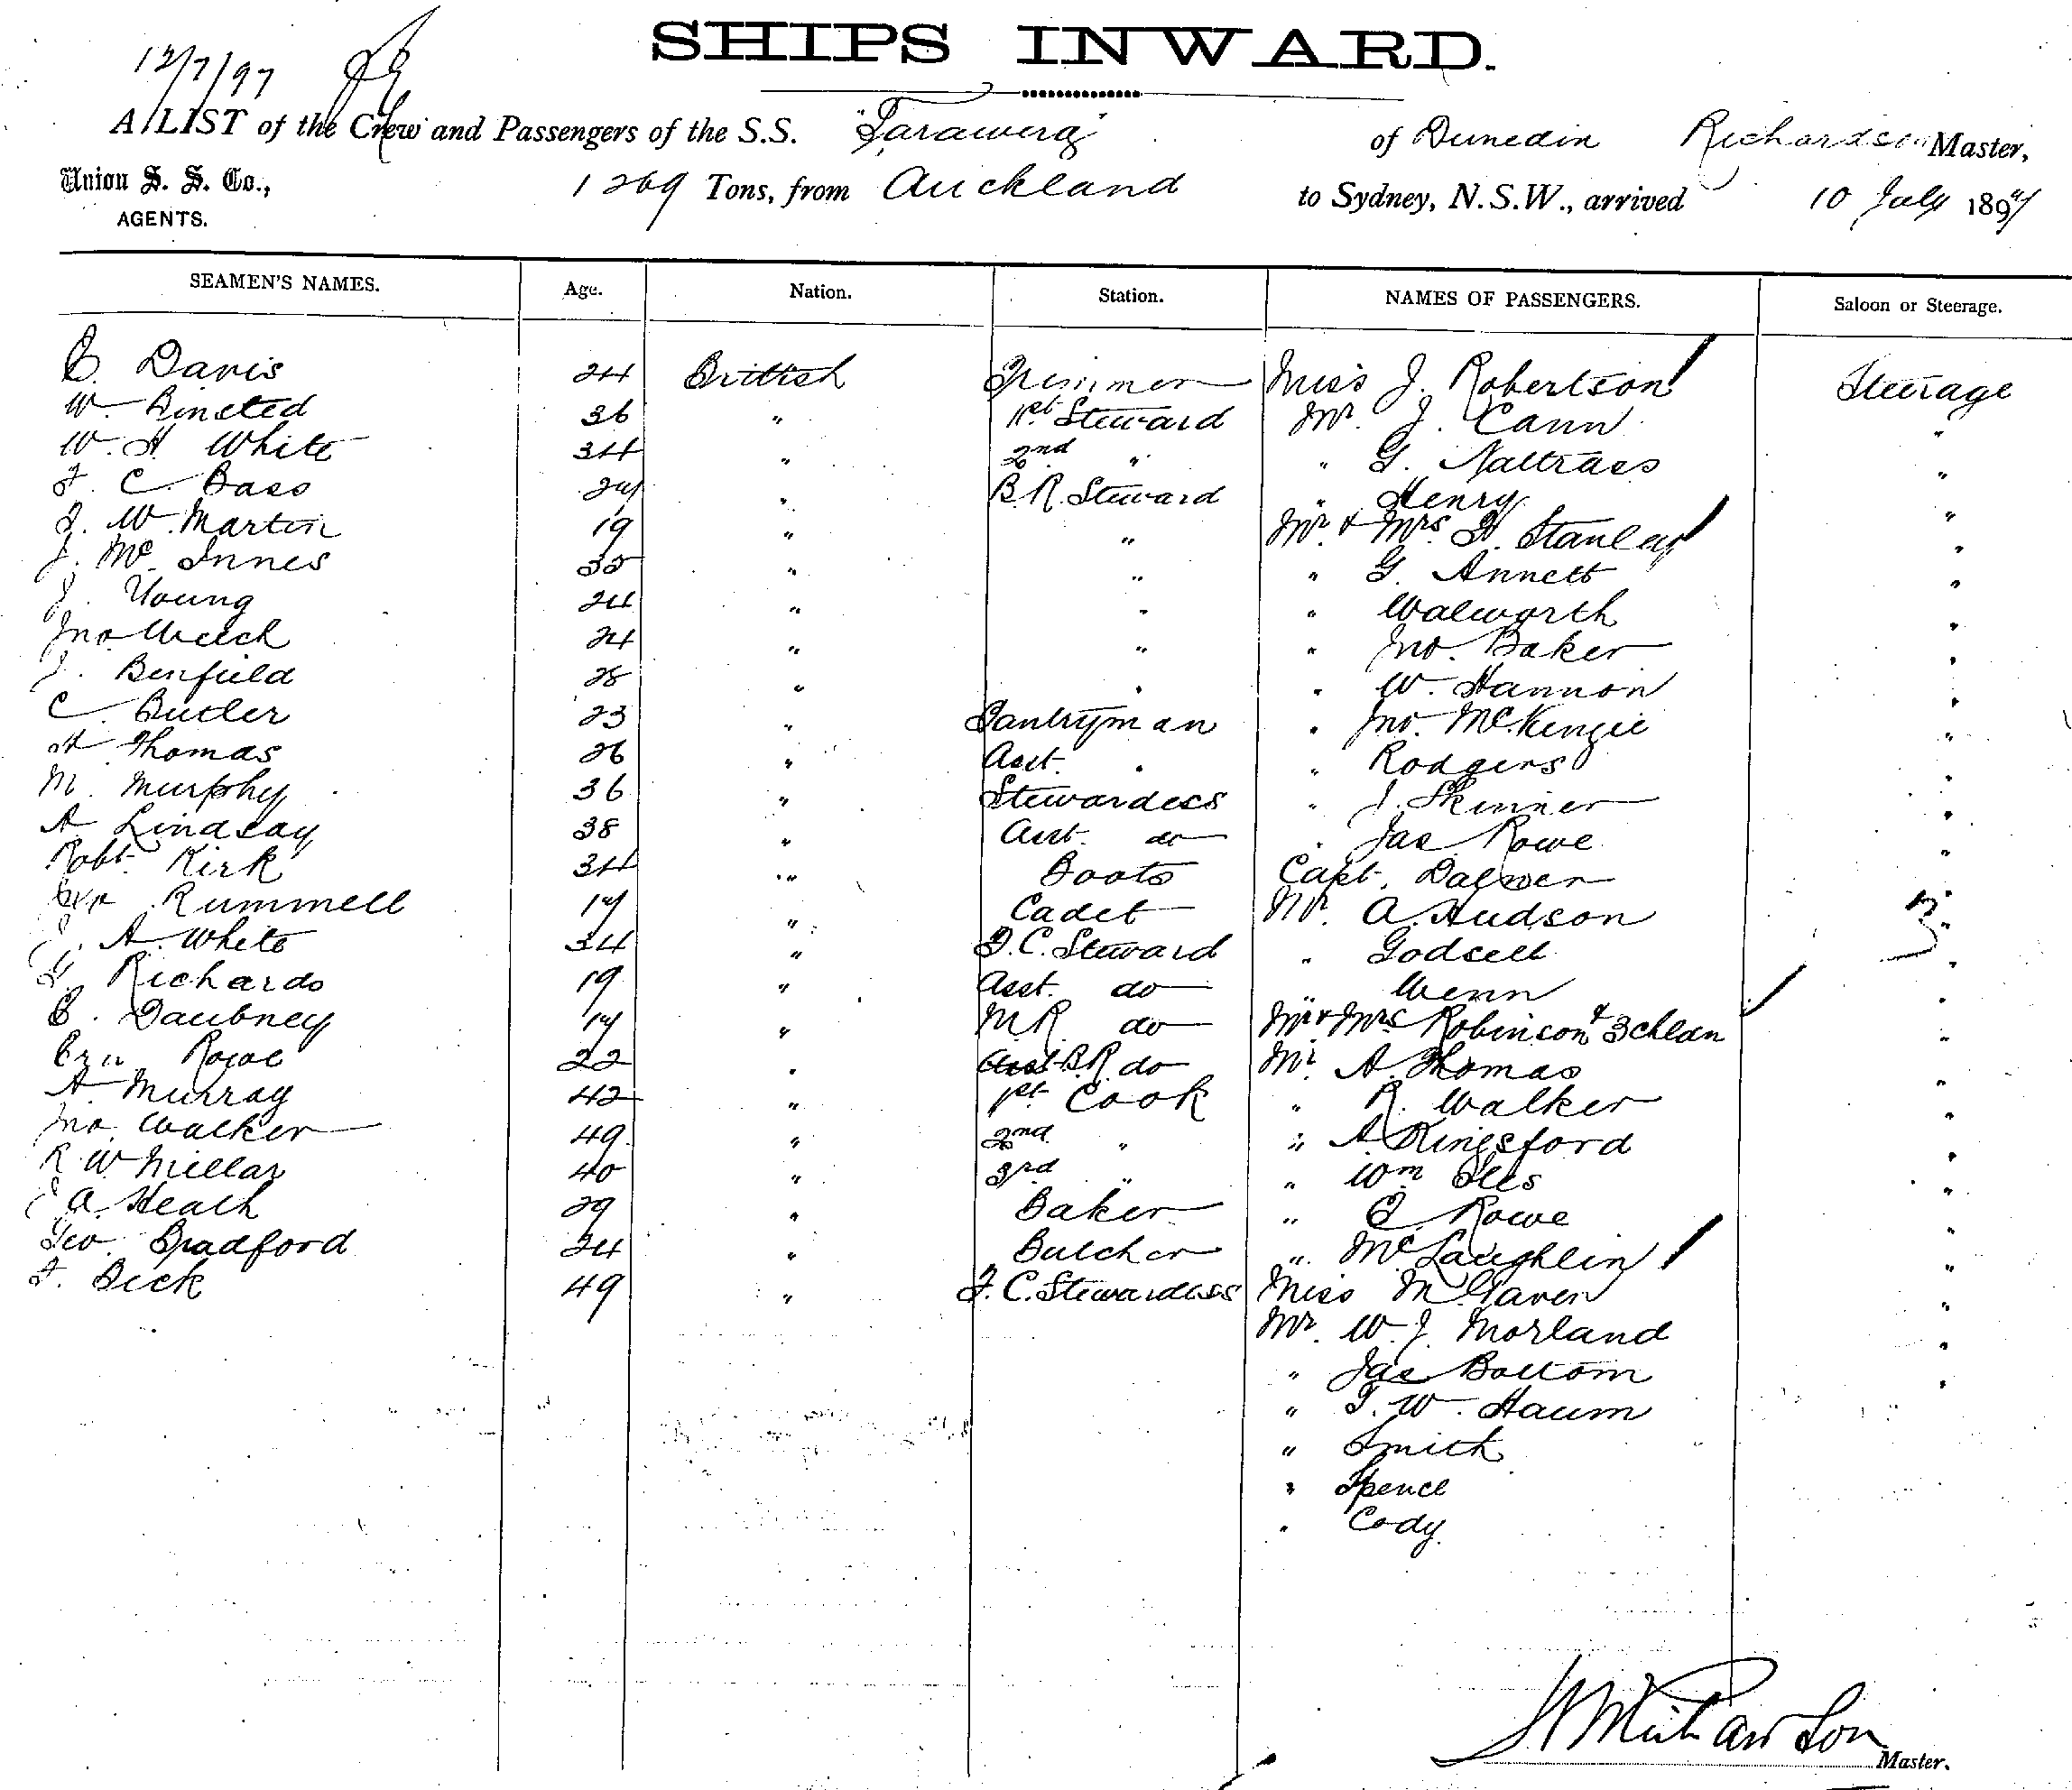 SHIPS INWARD.
12/7/97
A LIST of the Crew and Passengers of the S.S. "Tarawera" of Dunedin Richardson Master,
Union S. S. Co., AGENTS. 1269 Tons, from Auckland to Sydney, N.S.W., arrived 10 July 1897
SEAMEN'S NAMES. Age. Nation. Station. NAMES OF PASSENGERS. Saloon or Steerage.
C. Davis 24 British Trimmer Miss J. Robertson Steerage
W. Binsted 36 " 1st Steward Mr. J. Cann "
W. H. White 34 " 2nd " " G. Nattrass "
F. C. Bass 24 " B.R. Steward " Henry "
J. W. Martin 19 " " Mr. & Mrs. H. Stanley "
J. McInnes 32 " " " G. Annett "
J. Young 24 " " " Walworth "
Jno Welch 24 " " " Jno. Baker "
J. Benfield 28 " " " W. Hannon "
C. Butler 23 " Pantryman " Jno. McKenzie "
H Thomas 26 " Asst. " " Rodgers "
M. Murphy 36 " Stewardess " J. Skinner "
A. Lindsay 38 " Asst. do " Jas Rowe "
Robt Kirk 34 " Boots Capt. "
Rummell 17 " Cadet Mr. A. Hudson "
A. White 34 " F.C. Steward " Godsell "
Richards 19 " Asst. do " Wenn "
C. Daubney 17 " M.R. do Mr & Mrs Robinson & 3 chldn "
Rowe 22 " Asst B.R. do Mr A. Thomas "
A. Murray 42 " 1st Cook " R. Walker "
Jno. Walker 49 " 2nd " " A. Kingsford "
R. W. Millar 40 " 3rd " " Wm Iles "
A. Heath 29 " Baker " E. Rowe "
Geo. Bradford 24 " Butcher " McLaughlin "
F. Bick 49 " F.C. Stewardess Miss McGaven "
Mr. W. J. Morland "
" Jas Bottom "
" T. W. Haum
" Smith
" Spence
" Cody
Richardson
Master.